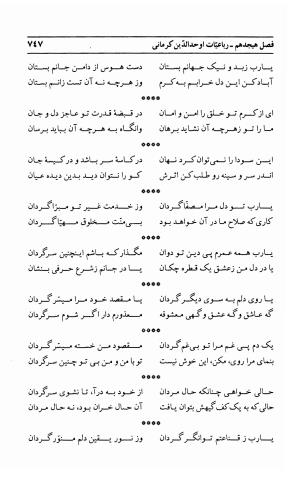 فصل هیجدهم ـ رباعیّات اوحدالدّین کرمانی ۷۴۷
یارب زبد و نیک جهانم بستان دست هوس از دامن جانم بستان
آبادکن این دل خرابم به کرم وز هرچه نه آن تست زانم بستان
****
ای از کرم تو خلق را امن و امان در قبضهٔ قدرت تو عاجز دل و جان
ما را تو زهرچه آن نشاید برهان وانگاه به هرچه آن بباید برسان
****
این سودا را نمی‌توان کرد نهان در کاسهٔ سر باشد و در کیسهٔ جان
اندر سر و سینه رو طلب کن اثرش کو را نتوان دید بدین دیده عیان
****
یارب تو دل مرا مصفّا گردان وز خدمت غیر تو مبرّا گردان
کاری که صلاح ما در آن خواهد بود بی‌منّت مخلوق مهیّا گردان
****
یارب همه عمرم پی دین تو دوان مگذار که باشم اینچنین سرگردان
یا در دل من زعشق یک قطره چکان یا در جانم زشرع حرفی بنشان
****
یا روی دلم به سوی دیگر گردان یا مقصد خود مرا میسّر گردان
گه عاشق و گه عشق و گهی معشوقه معذورم دار اگر شوم سرگردان
****
یک دم پی غم مرا تو بی‌غم گردان مقصود من خسته میسّر گردان
بنمای مرا روی، مکن، این خوش نیست تو با من و من بی تو چنین سرگردان
****
حالی خواهی چنانکه حال مردان از خود به درآ، تا نشوی سرگردان
حالی که به یک کف گیهش بتوان یافت آن حال خران بود، نه حال مردان
****
یارب ز قناعتم توانگر گردان وز نور یقین دلم منوّر گردان